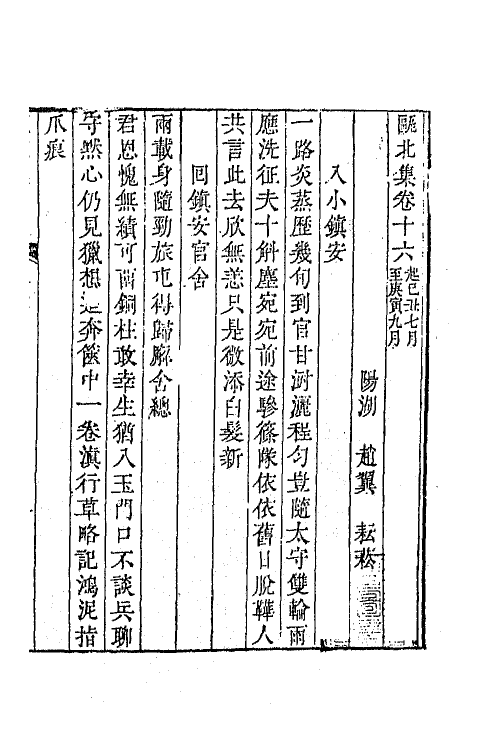 甌北集卷十六起己丑七月至庚寅九月
陽湖 趙翼 耘菘
入小鎮安
一路炎蒸歷幾旬到官甘澍灑程匀豈隨太守雙輪雨
應洗征夫十斛塵宛宛前途驂篠隊依依舊日脫鞾人
共言此去欣無恙只是微添白髮新
回鎮安官舍
兩載身隨勁旅屯得歸廨舍總
君恩愧無績可面銅柱敢幸生猶入玉門口不談兵聊
守黙心仍見獵想追奔篋中一卷滇行草略記鴻泥指
爪痕